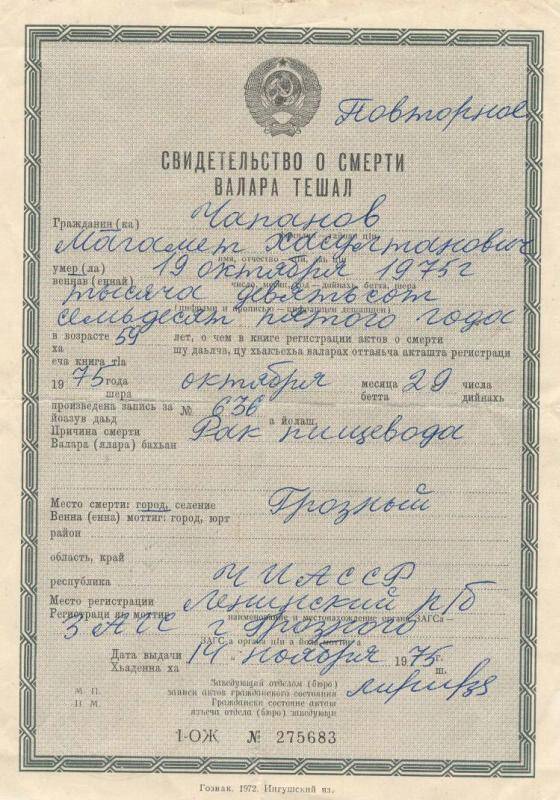 Повторное
СВИДЕТЕЛЬСТВО О СМЕРТИ
ВАЛАРА ТЕШАЛ
Гражданин (ка) Чапанов
Магамет
умер (ла) 19 октября 1975г
веннав (еннай) число, месяц, год — дийнахь, бетта, шера
тысяча девятьсот
семьдесят пятого года
в возрасте 59 лет, о чем в книге регистрации актов о смерти
ха шу даьлча, цу хьакъехьа валарах оттаньча акташта регистраци
еча книга тӀа
1975 года октября месяца 29 числа
шера бетта дийнахь
произведена запись за № 636
йоазув даьд а йолаш.
Причина смерти Рак пищевода
Валара (ялара) бахьан
Место смерти: город, селение Грозный
Венна (енна) моттиг: город, юрт
район
область, край
республика ЧИАССР
Место регистрации Ленинский р/б
Регистраци яь моттиг наименование и местонахождение органа ЗАГСа —
ЗАГС г Грозного
Дата выдачи 14 „ ноября 1975 г.
Хьаденна ха ш.
Заведующий отделом (бюро)
М. П. записи актов гражданского состояния
П М. Граждански состояне акташ
язъеча отдела (бюро) заведующи
1-ОЖ № 275683
Гознак. 1972. Ингушский яз.